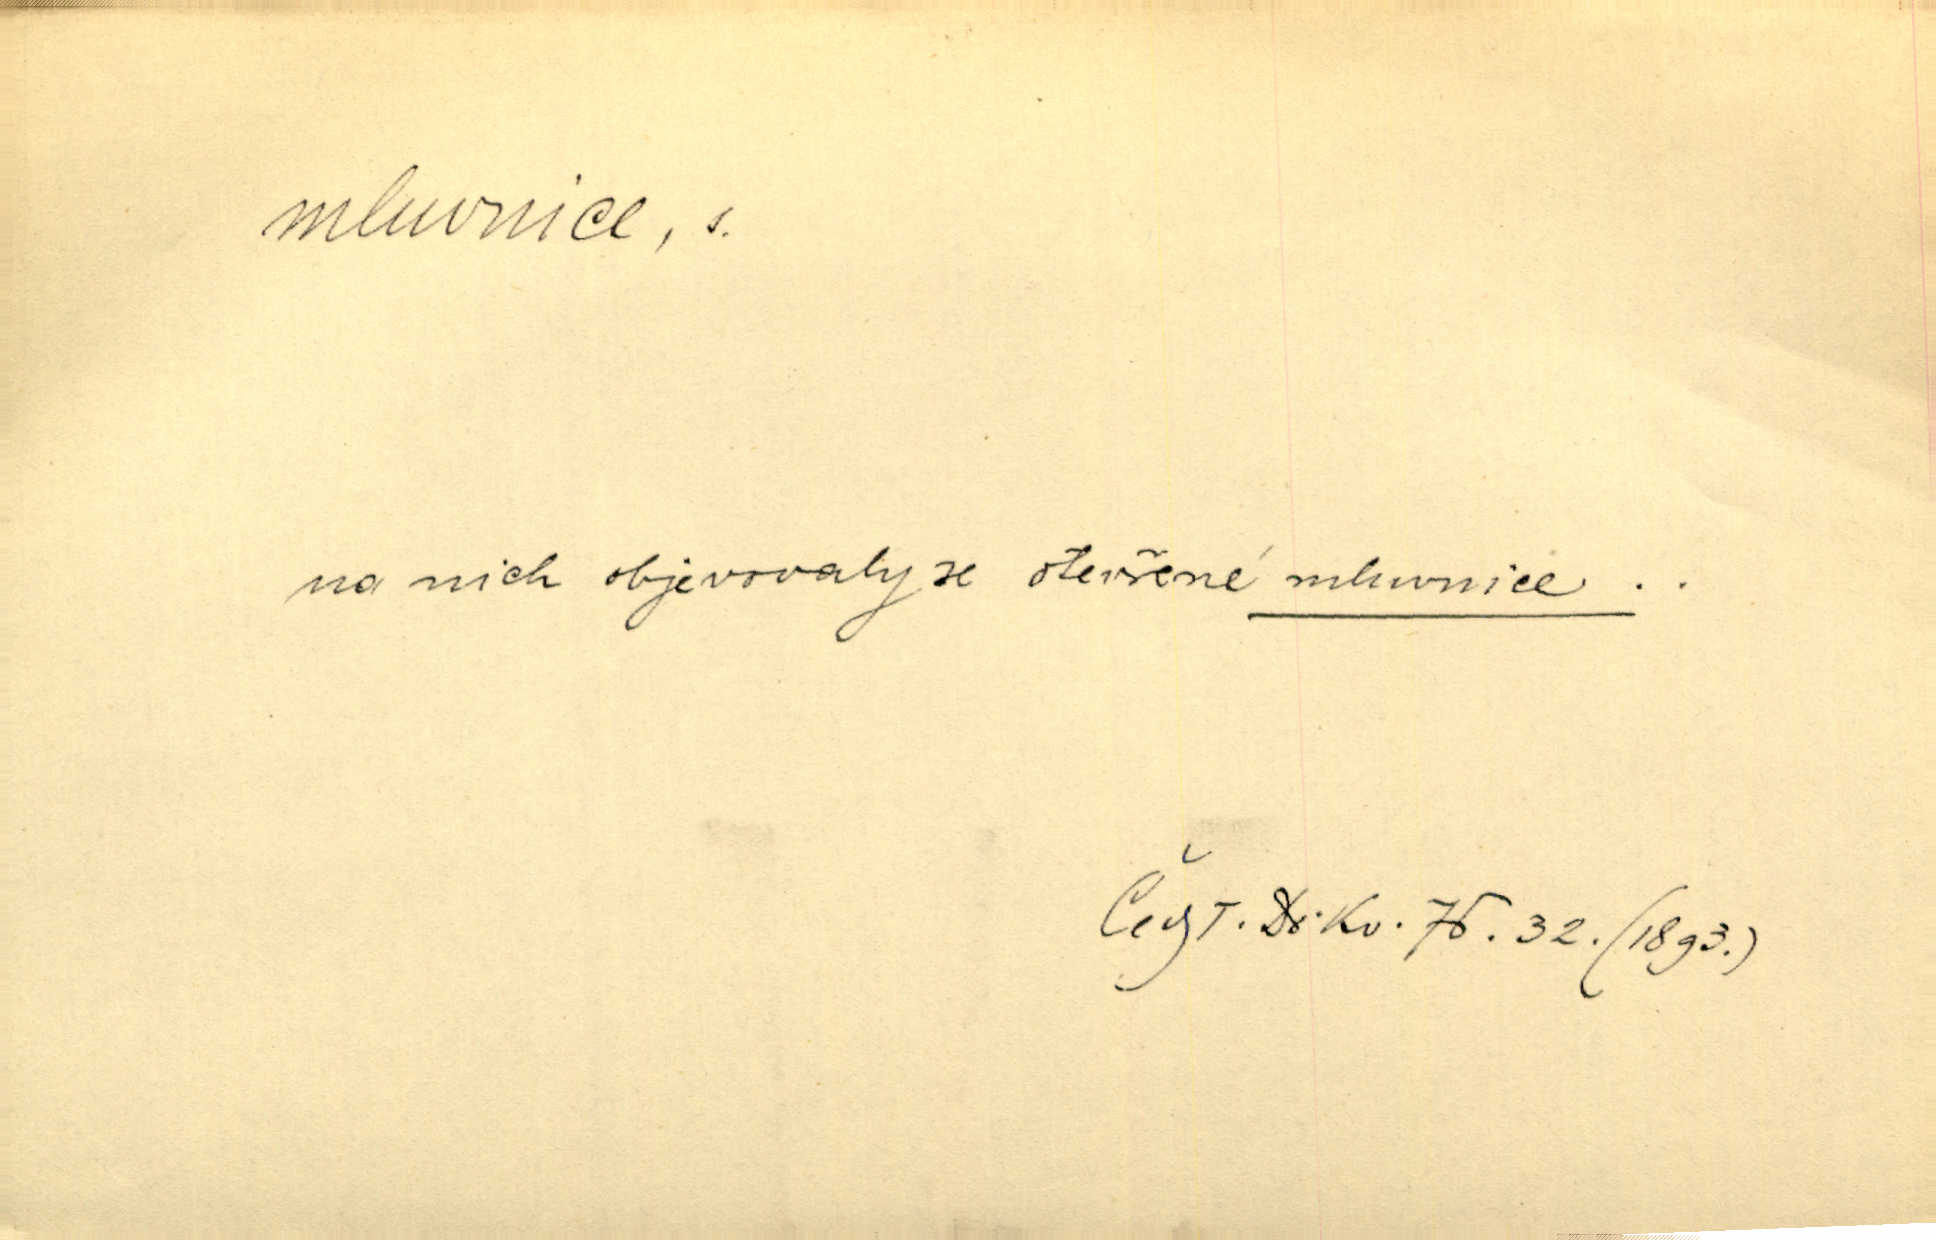 mluvnice, s.
na nich objevovaly se otevřené mluvnice . .
Čejst. Kv. 32. (1893.)